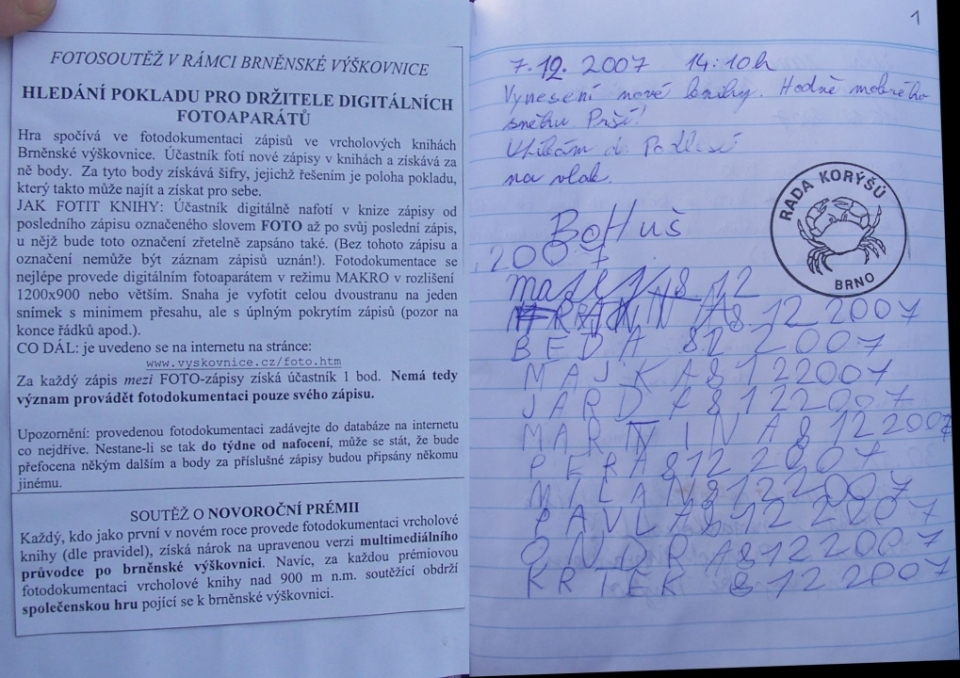 FOTOSOUTĚŽ V RÁMCI BRNĚNSKÉ VÝŠKOVNICE
HLEDÁNÍ POKLADU PRO DRŽITELE DIGITÁLNÍCH
FOTOAPARÁTŮ
Hra spočívá ve fotodokumentaci zápisů ve vrcholových knihách
Brněnské výškovnice. Účastník fotí nové zápisy v knihách a získává za
ně body. Za tyto body získává šifry, jejichž řešením je poloha pokladu,
který takto může najít a získat pro sebe.
JAK FOTIT KNIHY: Účastník digitálně nafotí v knize zápisy od
posledního zápisu označeného slovem FOTO až po svůj poslední zápis,
u nějž bude toto označení zřetelně zapsáno také. (Bez tohoto zápisu a
označení nemůže být záznam zápisů uznán!). Fotodokumentace se
nejlépe provede digitálním fotoaparátem v režimu MAKRO v rozlišení
1200x900 nebo větším. Snaha je vyfotit celou dvoustranu na jeden
snímek s minimem přesahu, ale s úplným pokrytím zápisů (pozor na
konce řádků apod.).
CO DÁL: je uvedeno se na internetu na stránce:
www.vyskovnice.cz/foto.htm
Za každý zápis mezi FOTO-zápisy získá účastník 1 bod. Nemá tedy
význam provádět fotodokumentaci pouze svého zápisu.
Upozornění: provedenou fotodokumentaci zadávejte do databáze na internetu
co nejdříve. Nestane-li se tak do týdne od nafocení, může se stát, že bude
přefocena někým dalším a body za příslušné zápisy budou připsány někomu
jinému.
SOUTĚŽ O NOVOROČNÍ PRÉMII
Každý, kdo jako první v novém roce provede fotodokumentaci vrcholové
knihy (dle pravidel), získá nárok na upravenou verzi multimediálního
průvodce po brněnské výškovnici. Navíc, za každou prémiovou
fotodokumentaci vrcholové knihy nad 900 m n.m. soutěžící obdrží
společenskou hru pojící se k brněnské výškovnici.
1
7.12. 2007 14:10h
Vynesení nové knihy. Hodně mokrého
sněhu Prší!
na vlak.
RADA KORÝŠŮ
BRNO
BoHuš
2007
8 12
8 12 2007
BEĎA 812 2007
MAJKA 8 122007
JARDA 8 122007
MARTINA 8 12 2007
PERA 812 2007
MILAN 8122007
PAVLA 8 12 2007
ONDRA 8122007
KRTEK 8 12 2007